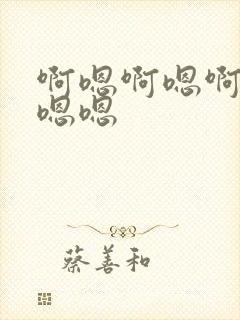 啊嗯啊嗯啊
嗯嗯
蔡善和